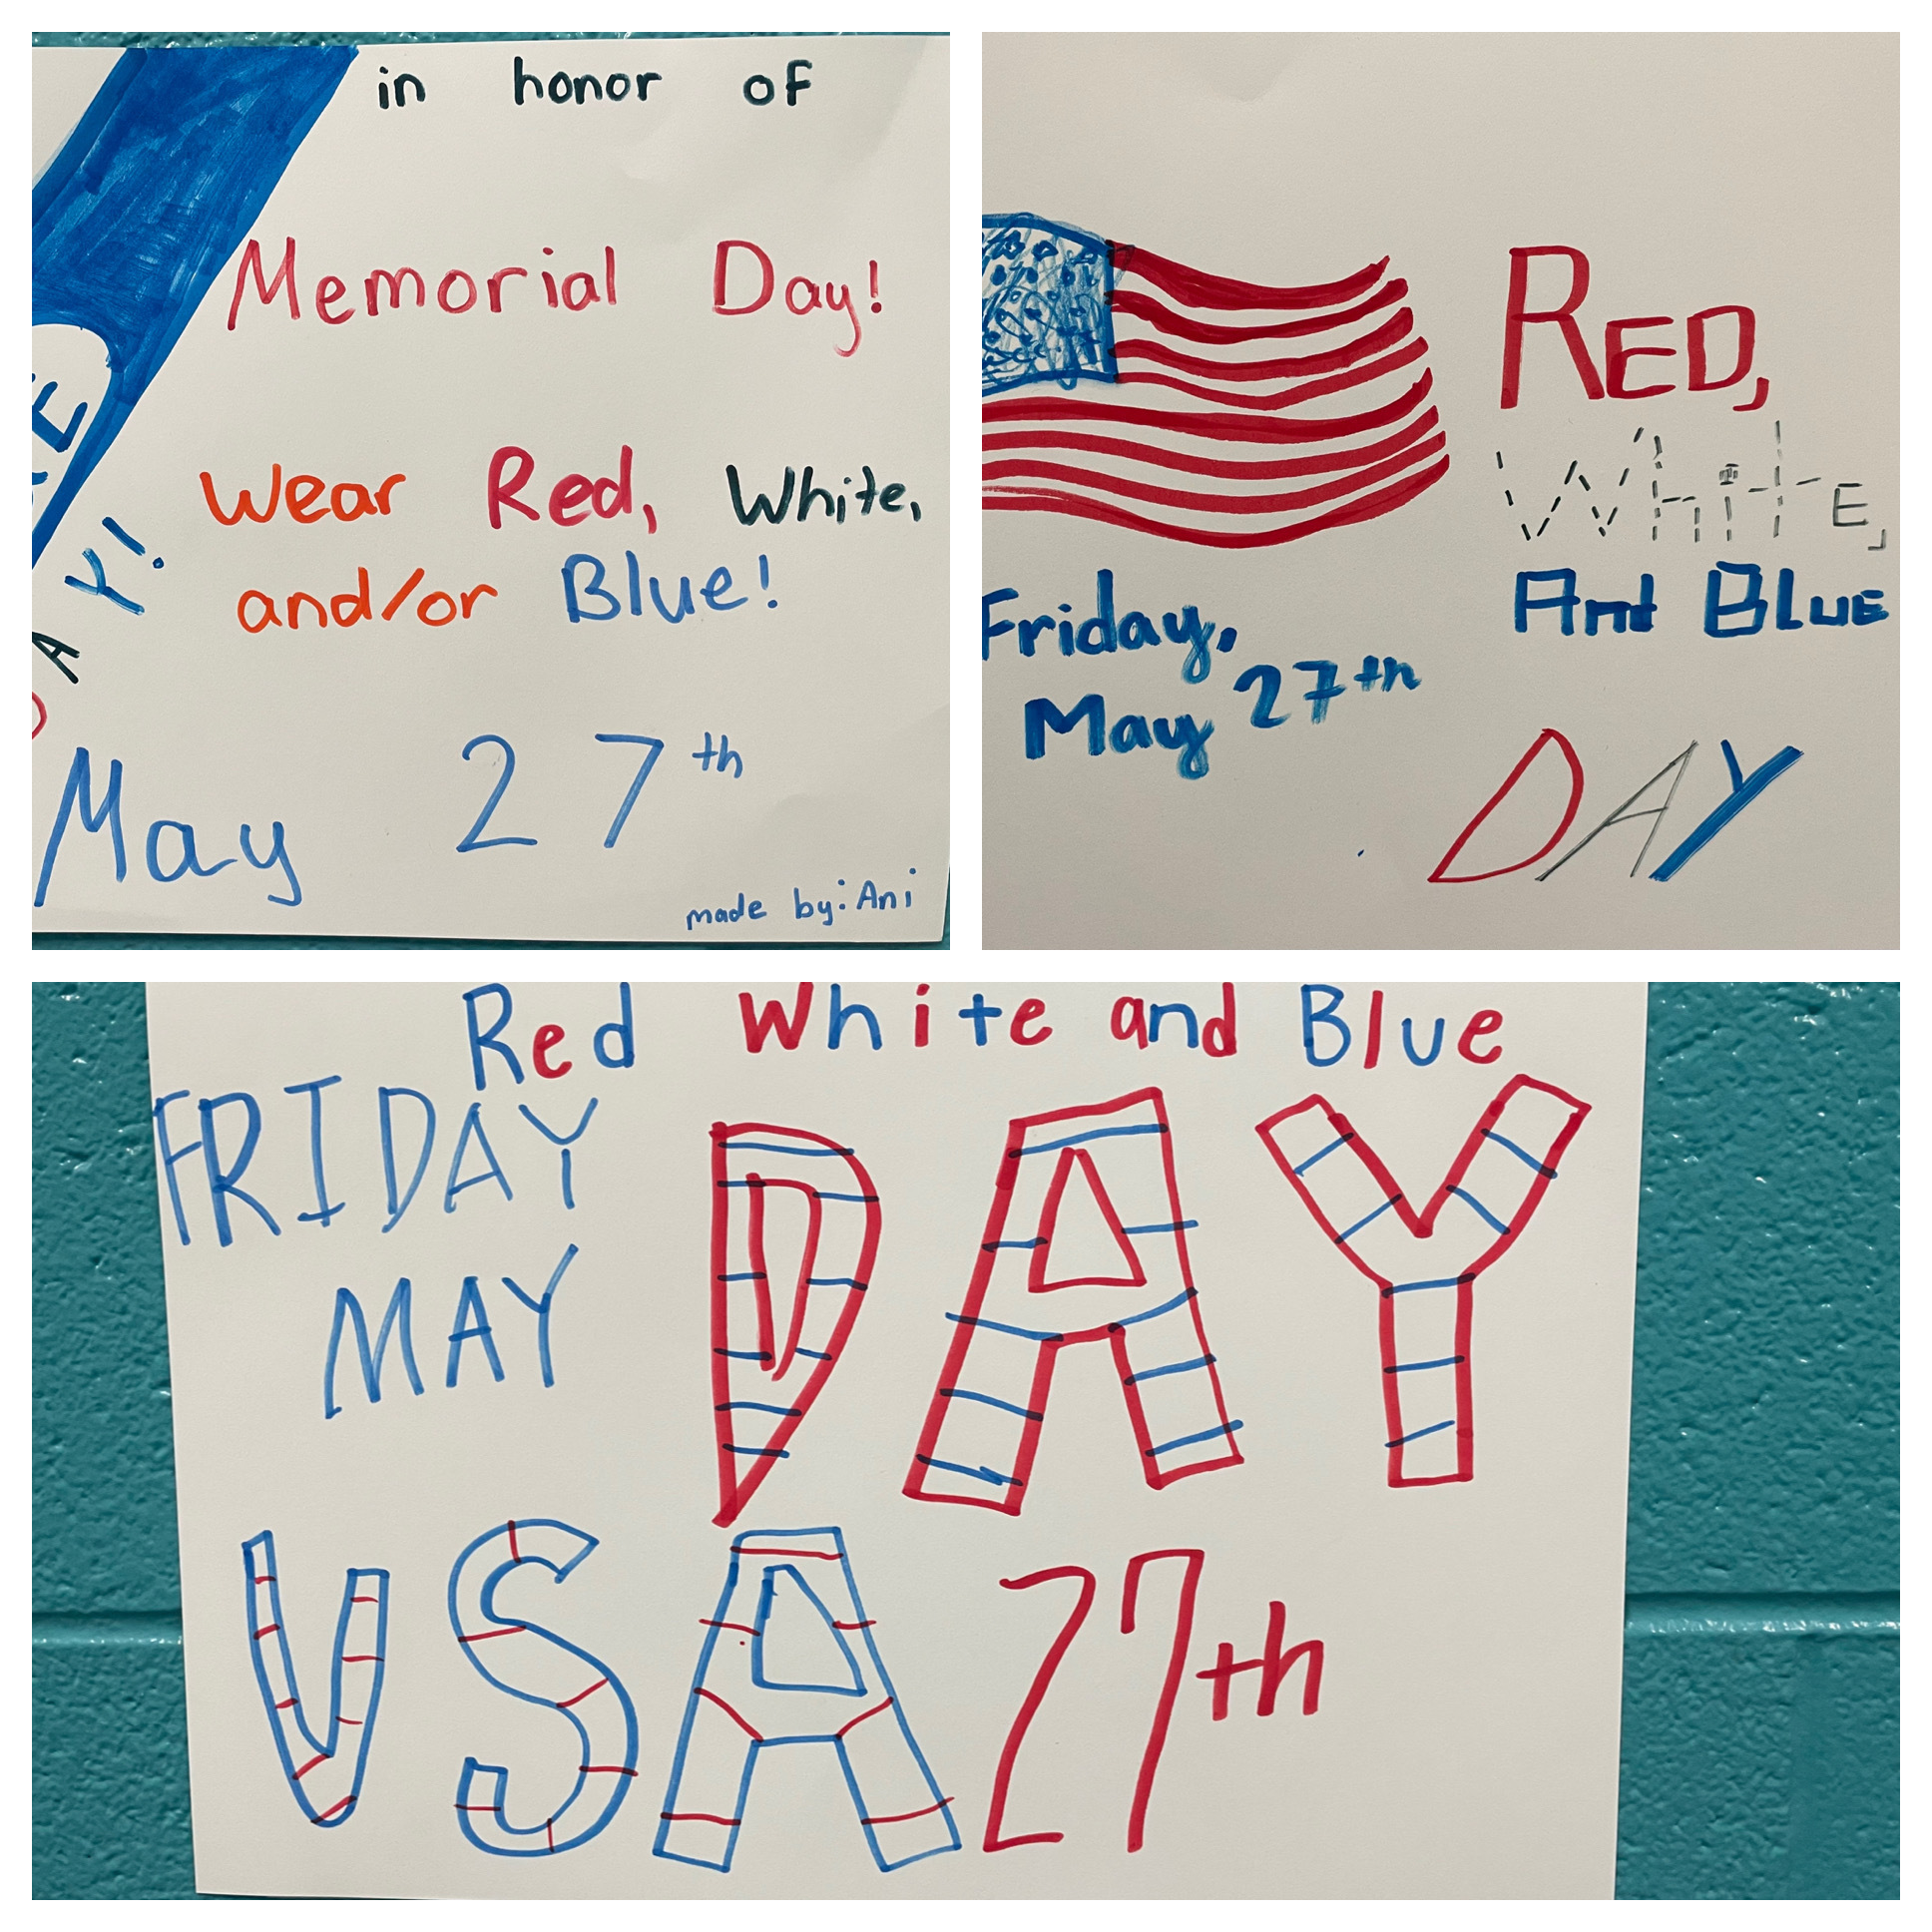 in honor of
Memorial Day!
Wear Red, White,
and/or Blue!
May 27th
made by: Ani
RED,
WhitE,
And BLUE
DAY
Friday,
May 27th
Red White and Blue
FRIDAY
MAY
DAY
USA 27th